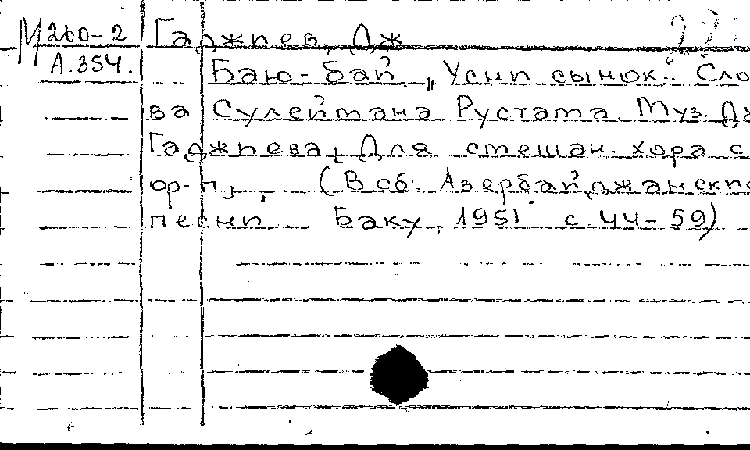 М 260-2 Гаджиев, Дж
А.354. Баю-бай „Усни сынок." Сло
ва Сулеймана Рустама Муз. Дж
Гаджиева, Для смешан. хора с
ор-п, (В сб. Азербайджанские
песни Баку, 1951 с. 44-59)